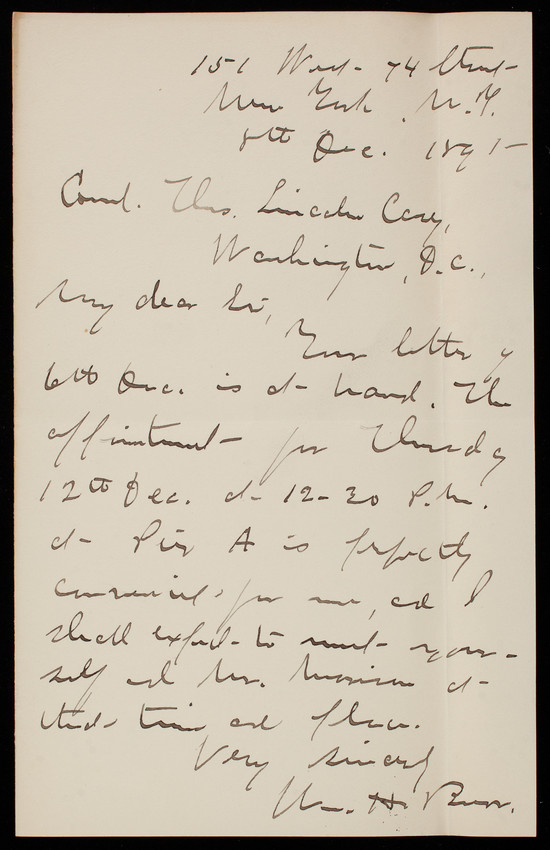 151 West 74 Street
New York, N.Y.
8th Dec. 1895
Genl. Thos. Lincoln Casey,
Washington, D.C.,
My dear Sir,
Your letter of
6th Dec. is at hand. The
appointment for Thursday
12th Dec. at 12-30 P.M.
at Pier A is perfectly
convenient for me, and I
shall expect to meet your-
self and Mr. Morison at
that time and place.
Very sincerely
Wm. H. Burr.